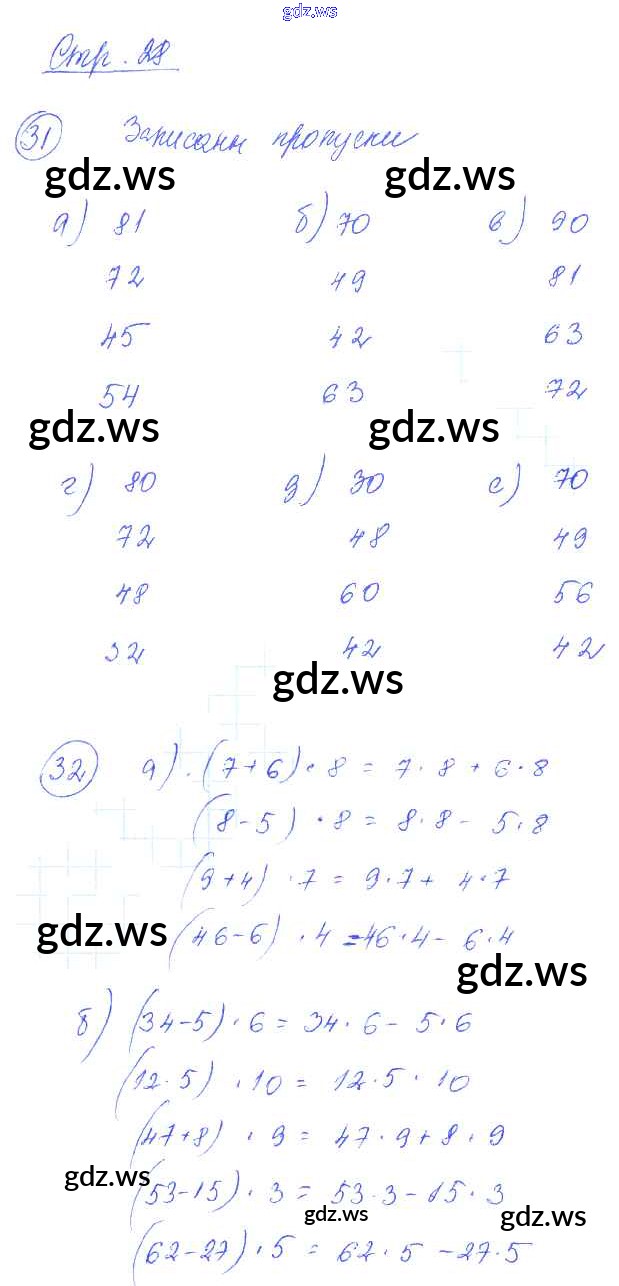 gdz.ws
Стр. 28
31 Записаны пропуски
gdz.ws gdz.ws
а) 81 б) 70 в) 90
72 49 81
45 42 63
54 63 72
gdz.ws gdz.ws
г) 80 д) 30 е) 70
72 48 49
48 60 56
32 42 42
gdz.ws
32 а) (7+6) · 8 = 7 · 8 + 6 · 8
(8-5) · 8 = 8 · 8 - 5 · 8
(9+4) · 7 = 9 · 7 + 4 · 7
gdz.ws (46-6) · 4 = 46 · 4 - 6 · 4
gdz.ws
б) (34-5) · 6 = 34 · 6 - 5 · 6
(12 · 5) · 10 = 12 · 5 · 10
(47+8) · 9 = 47 · 9 + 8 · 9
gdz.ws (53-15) · 3 = 53 · 3 - 15 · 3
gdz.ws gdz.ws
(62-27) · 5 = 62 · 5 - 27 · 5